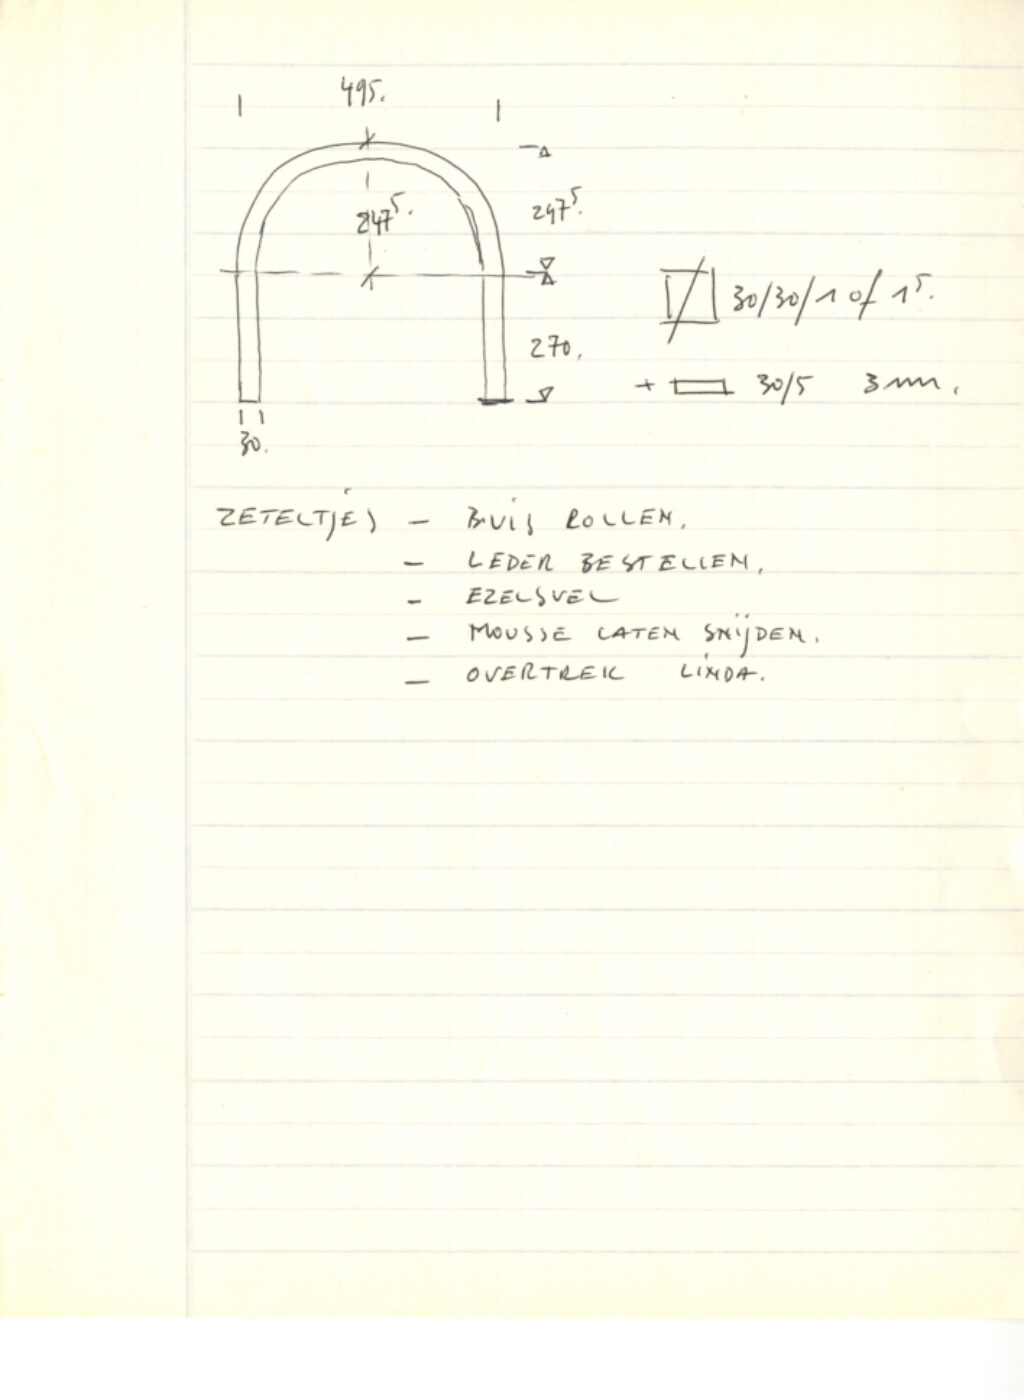 495.
247⁵.
247⁵.
30/30/1 of 1⁵.
270.
+ 30/5 3mm.
30.
ZETELTJES – BUIS ROLLEN.
– LEDER BESTELLEN.
– EZELSVEL
– MOUSSE LATEN SNIJDEN.
– OVERTREK LINDA.